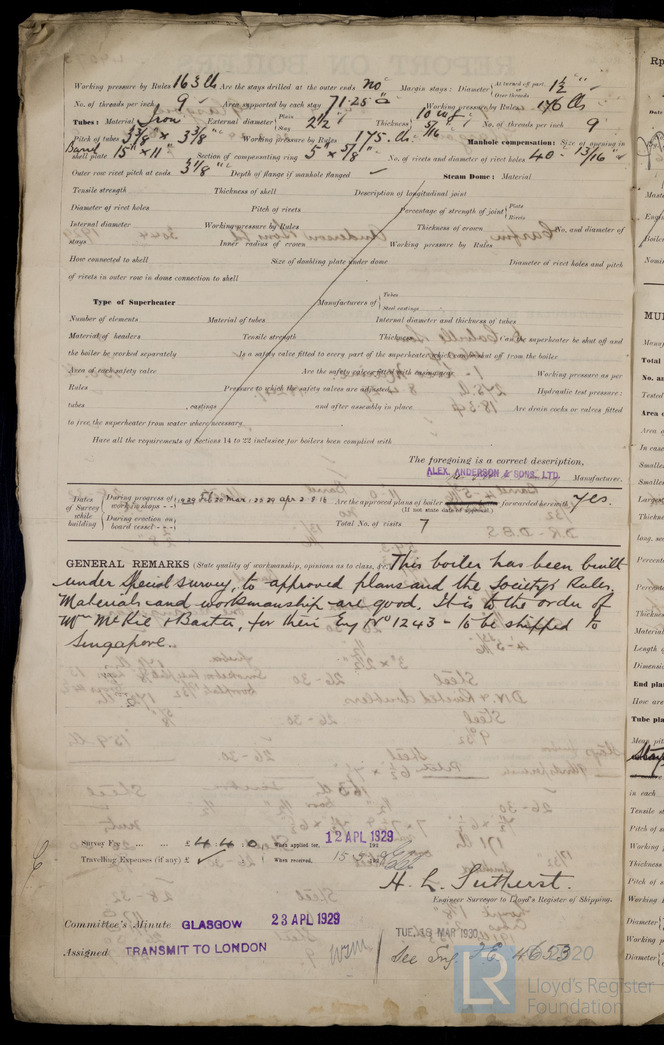 Working pressure by Rules 163 lb Are the stays drilled at the outer ends no Margin stays: Diameter { At turned off part, or Over threads 1½"
No. of threads per inch 9 Area supported by each stay 71.25 Working pressure by Rules 176 lbs
Tubes: Material Iron External diameter { Plain Stay 2½" Thickness { 10 WG 5/16 No. of threads per inch 9
Pitch of tubes 3⅜" x 3⅜" Working pressure by Rules 175 lb. Manhole compensation: Size of opening in
shell plate 15" x 11" Section of compensating ring 5" x 5/8" No. of rivets and diameter of rivet holes 40 - 13/16"
Outer row rivet pitch at ends 3⅛" Depth of flange if manhole flanged Steam Dome: Material
Tensile strength Thickness of shell Description of longitudinal joint
Diameter of rivet holes Pitch of rivets Percentage of strength of joint { Plate Rivets
Internal diameter Working pressure by Rules Thickness of crown No. and diameter of
stays Inner radius of crown Working pressure by Rules
How connected to shell Size of doubling plate under dome Diameter of rivet holes and pitch
of rivets in outer row in dome connection to shell
Type of Superheater Manufacturers of { Tubes Steel castings
Number of elements Material of tubes Internal diameter and thickness of tubes
Material of headers Tensile strength Thickness Can the superheater be shut off and
the boiler be worked separately Is a safety valve fitted to every part of the superheater which can be shut off from the boiler
Area of each safety valve Are the safety valves fitted with easing gear Working pressure as per
Rules Pressure to which the safety valves are adjusted Hydraulic test pressure:
tubes castings and after assembly in place Are drain cocks or valves fitted
to free the superheater from water where necessary
Have all the requirements of Sections 14 to 22 inclusive for boilers been complied with
The foregoing is a correct description,
ALEX. ANDERSON & SONS, LTD. Manufacturer.
Dates of Survey while building { During progress of work in shops - - 1929 Feb 20 Mar: 25 29 Apr 2. 8. 10 Are the approved plans of boiler forwarded herewith yes.
During erection on board vessel - - - (If not state date of approval.)
Total No. of visits 7
GENERAL REMARKS (State quality of workmanship, opinions as to class, &c. This boiler has been built
under Special Survey, to approved plans and the Society's Rules,
Materials and workmanship are good. It is to the order of
Mr McKie & Baxter, for their Eng No 1243 - to be shipped to
Singapore.
Survey Fee ... ... £ 4 : 4 : 0 When applied for, 12 APL 1929
Travelling Expenses (if any) £ When received, 192
H. L. Sutherst.
Engineer Surveyor to Lloyd's Register of Shipping.
Committee's Minute GLASGOW 23 APL 1929
Assigned TRANSMIT TO LONDON
TUE. 18 MAR 1930
See
LR
Lloyd's Register
Foundation